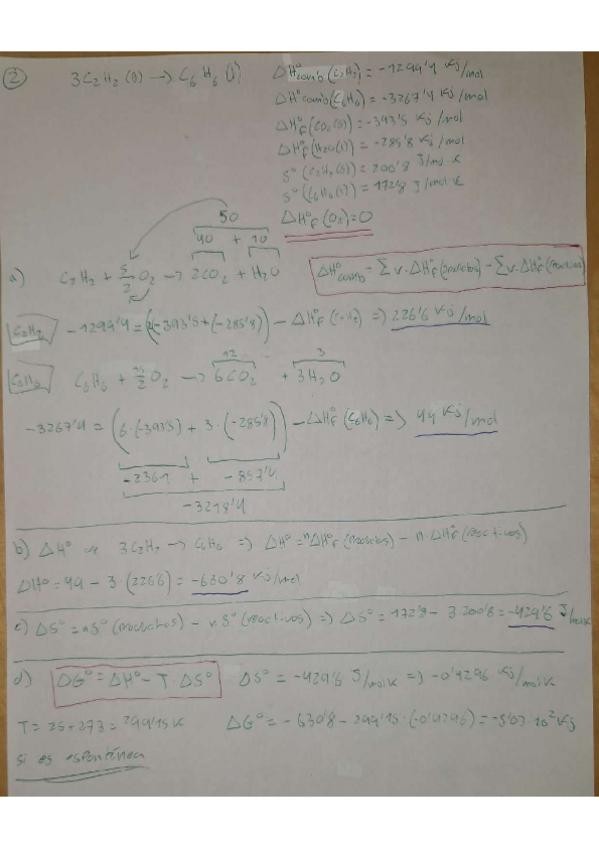 ② 3C₂H₂ (g) → C₆H₆ (l)
ΔHºcomb (C₂H₂) = -1299'4 kj/mol
ΔHºcomb (C₆H₆) = -3267'4 kj/mol
ΔHºf (CO₂(g)) = -393'5 kj/mol
ΔHºf (H₂O(l)) = -285'8 kj/mol
Sº (C₂H₂(g)) = 200'8 J/mol·K
Sº (C₆H₆(l)) = 172'8 J/mol·K
ΔHºf (O₂) = 0
50
40 + 10
a) C₂H₂ + 5/2 O₂ → 2CO₂ + H₂O
ΔHºcomb = Σν·ΔHºf (productos) - Σν·ΔHºf (reactivos)
C₂H₂ -1299'4 = (2(-393'5 + (-285'8)) - ΔHºf (C₂H₂) => 226'6 kj/mol
12 3
C₆H₆ C₆H₆ + 15/2 O₂ → 6CO₂ + 3H₂O
-3267'4 = (6·(-393'5) + 3·(-285'8)) - ΔHºf (C₆H₆) => 49 kj/mol
-2361 + -857'4
-3218'4
b) ΔHº 3C₂H₂ → C₆H₆ => ΔHº = nΔHºf (productos) - n·ΔHºf (reactivos)
ΔHº = 49 - 3·(226'6) = -630'8 kj/mol
c) ΔSº = nSº (productos) - n·Sº (reactivos) => ΔSº = 172'8 - 3·200'8 = -429'6 J/molK
d) ΔGº = ΔHº - T·ΔSº ΔSº = -429'6 J/molK => -0'4296 kj/molK
T = 25 + 273 = 299'15 K ΔGº = -630'8 - 299'15·(-0'4296) = -5'03·10² kj
si es espontánea